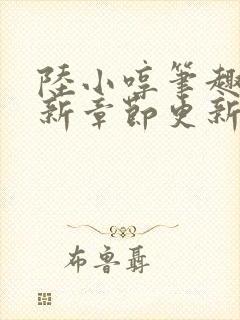 陸小啍筆趣
新章節更新
布魯聶